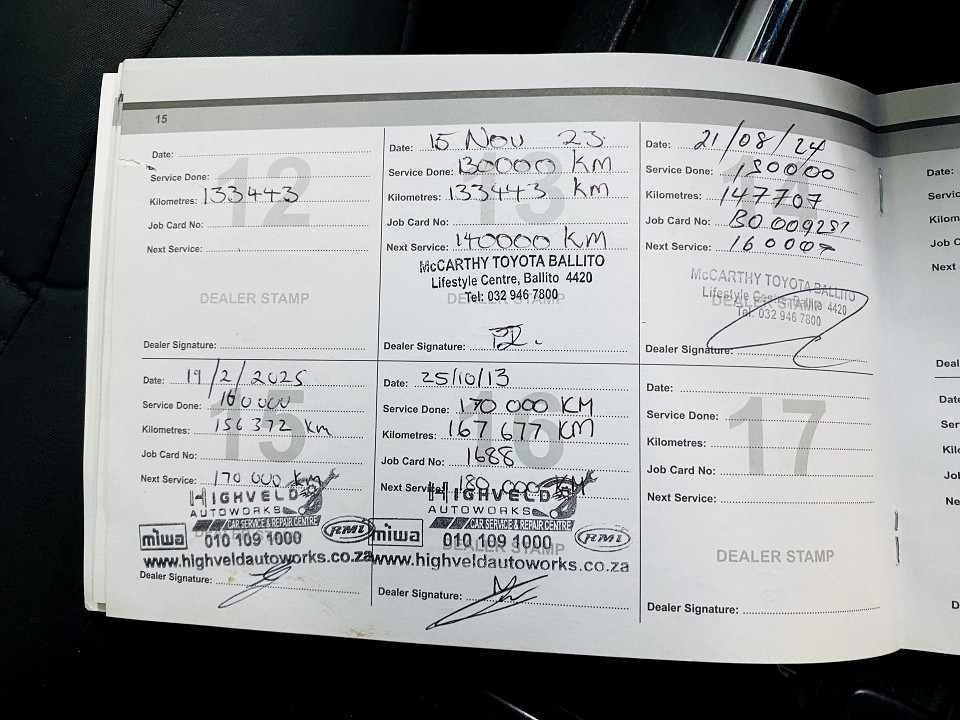 15
Date:
Service Done:
Kilometres: 133443
Job Card No:
Next Service:
12
DEALER STAMP
Dealer Signature:
Date: 15 Nov 23.
Service Done: 130000 KM
Kilometres: 133443 km
Job Card No:
Next Service: 140000 KM
13
McCARTHY TOYOTA BALLITO
Lifestyle Centre, Ballito 4420
Tel: 032 946 7800
DEALER STAMP
Dealer Signature:
Date: 21/08/24
Service Done: 150000
Kilometres: 147707
Job Card No:
Next Service:
14
McCARTHY TOYOTA BALLITO
Lifestyle Centre, Ballito 4420
Tel: 032 946 7800
DEALER STAMP
Dealer Signature:
Date: 19/2/2025
Service Done: 160000
Kilometres: 156372 Km
Job Card No:
Next Service: 170 000 km
15
HIGHVELD
AUTOWORKS
CAR SERVICE & REPAIR CENTRE
miwa 010 109 1000 RMI
www.highveldautoworks.co.za
Dealer Signature:
Date: 25/10/13
Service Done: 170 000 KM
Kilometres: 167 677 KM
Job Card No: 1688
Next Service: 180 000 KM
16
HIGHVELD
AUTOWORKS
CAR SERVICE & REPAIR CENTRE
miwa 010 109 1000 RMI
DEALER STAMP
www.highveldautoworks.co.za
Dealer Signature:
Date:
Service Done:
Kilometres:
Job Card No:
Next Service:
17
DEALER STAMP
Dealer Signature:
Date: